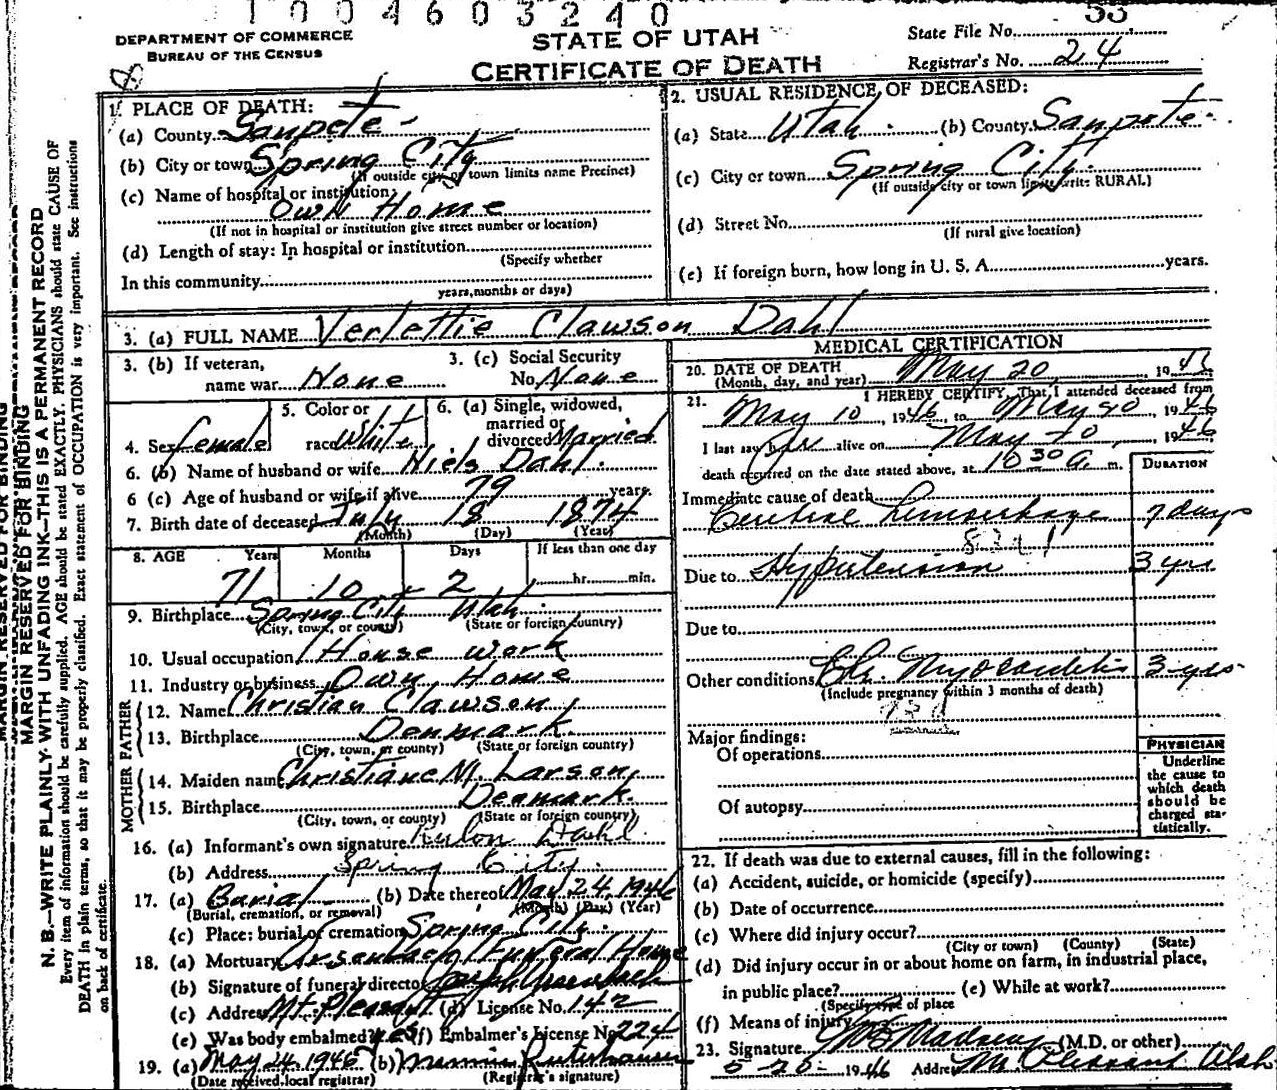 1004603240
53
DEPARTMENT OF COMMERCE
BUREAU OF THE CENSUS
STATE OF UTAH
CERTIFICATE OF DEATH
State File No.
Registrar's No. 24
MARGIN RESERVED FOR BINDING
N. B.—WRITE PLAINLY WITH UNFADING INK—THIS IS A PERMANENT RECORD
Every item of information should be carefully supplied. AGE should be stated EXACTLY. PHYSICIANS should state CAUSE OF
DEATH in plain terms, so that it may be properly classified. Exact statement of OCCUPATION is very important. See instructions
on back of certificate.
1. PLACE OF DEATH:
(a) County Sanpete
(b) City or town Spring City
(If outside city or town limits name Precinct)
(c) Name of hospital or institution:
Own Home
(If not in hospital or institution give street number or location)
(d) Length of stay: In hospital or institution
(Specify whether
In this community
years, months or days)
2. USUAL RESIDENCE OF DECEASED:
(a) State Utah (b) County Sanpete
(c) City or town Spring City
(If outside city or town limits write RURAL)
(d) Street No.
(If rural give location)
(e) If foreign born, how long in U. S. A. years.
3. (a) FULL NAME Verlettie Clawson Dahl
3. (b) If veteran, name war None
3. (c) Social Security No. None
4. Sex female
5. Color or race White
6. (a) Single, widowed, married or divorced Married
6. (b) Name of husband or wife Niels Dahl
6 (c) Age of husband or wife if alive 79 years.
7. Birth date of deceased July 18 1874
(Month) (Day) (Year)
8. AGE Years Months Days If less than one day
71 10 2 hr. min.
9. Birthplace Spring City Utah
(City, town, or county) (State or foreign country)
10. Usual occupation House work
11. Industry or business Own Home
FATHER
12. Name Christian Clawson
13. Birthplace Denmark
(City, town, or county) (State or foreign country)
MOTHER
14. Maiden name Christiane M. Larson
15. Birthplace Denmark
(City, town, or county) (State or foreign country)
16. (a) Informant's own signature Rulon Dahl
(b) Address Spring City
17. (a) Burial (b) Date thereof May 24, 1946
(Burial, cremation, or removal) (Month) (Day) (Year)
(c) Place: burial or cremation Spring City
18. (a) Mortuary Ursenbach Funeral Home
(b) Signature of funeral director Ursenbach
(c) Address Mt. Pleasant (d) License No. 142
(e) Was body embalmed? yes (f) Embalmer's License No. 224
19. (a) May 24, 1946 (b)
(Date received local registrar) (Registrar's signature)
MEDICAL CERTIFICATION
20. DATE OF DEATH
(Month, day, and year) May 20, 19
21. I HEREBY CERTIFY, That I attended deceased from
May 10, 1946, to May 20, 1946
I last saw her alive on May 20, 1946
death occurred on the date stated above, at 10 30 a. m.
Immediate cause of death DURATION
hemorrhage 7 days
Due to Hypertension 3 yrs
Due to
Other conditions Chr. Myocarditis 3 yrs
(Include pregnancy within 3 months of death)
Major findings:
Of operations
Of autopsy
PHYSICIAN
Underline
the cause to
which death
should be
charged sta-
tistically.
22. If death was due to external causes, fill in the following:
(a) Accident, suicide, or homicide (specify)
(b) Date of occurrence
(c) Where did injury occur?
(City or town) (County) (State)
(d) Did injury occur in or about home on farm, in industrial place,
in public place? (e) While at work?
(Specify type of place
(f) Means of injury
23. Signature Madsen (M.D. or other)
5-20- 1946 Address Mt. Pleasant Utah